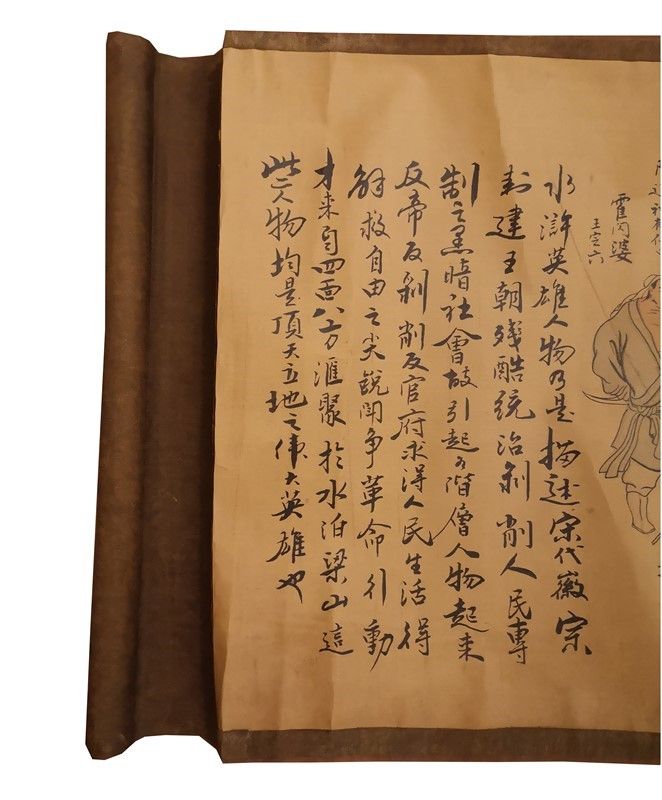 王定六
水滸英雄人物乃是描述宋代徽宗
封建王朝殘酷統治剥削人民專
制之黑暗社會故引起各階層人物起来
反帝反剥削反官府求得人民生活得
解救自由之尖銳闘争革命引動
才来自四面八方滙聚於水泊梁山這
些人物均是頂天立地之偉大英雄也